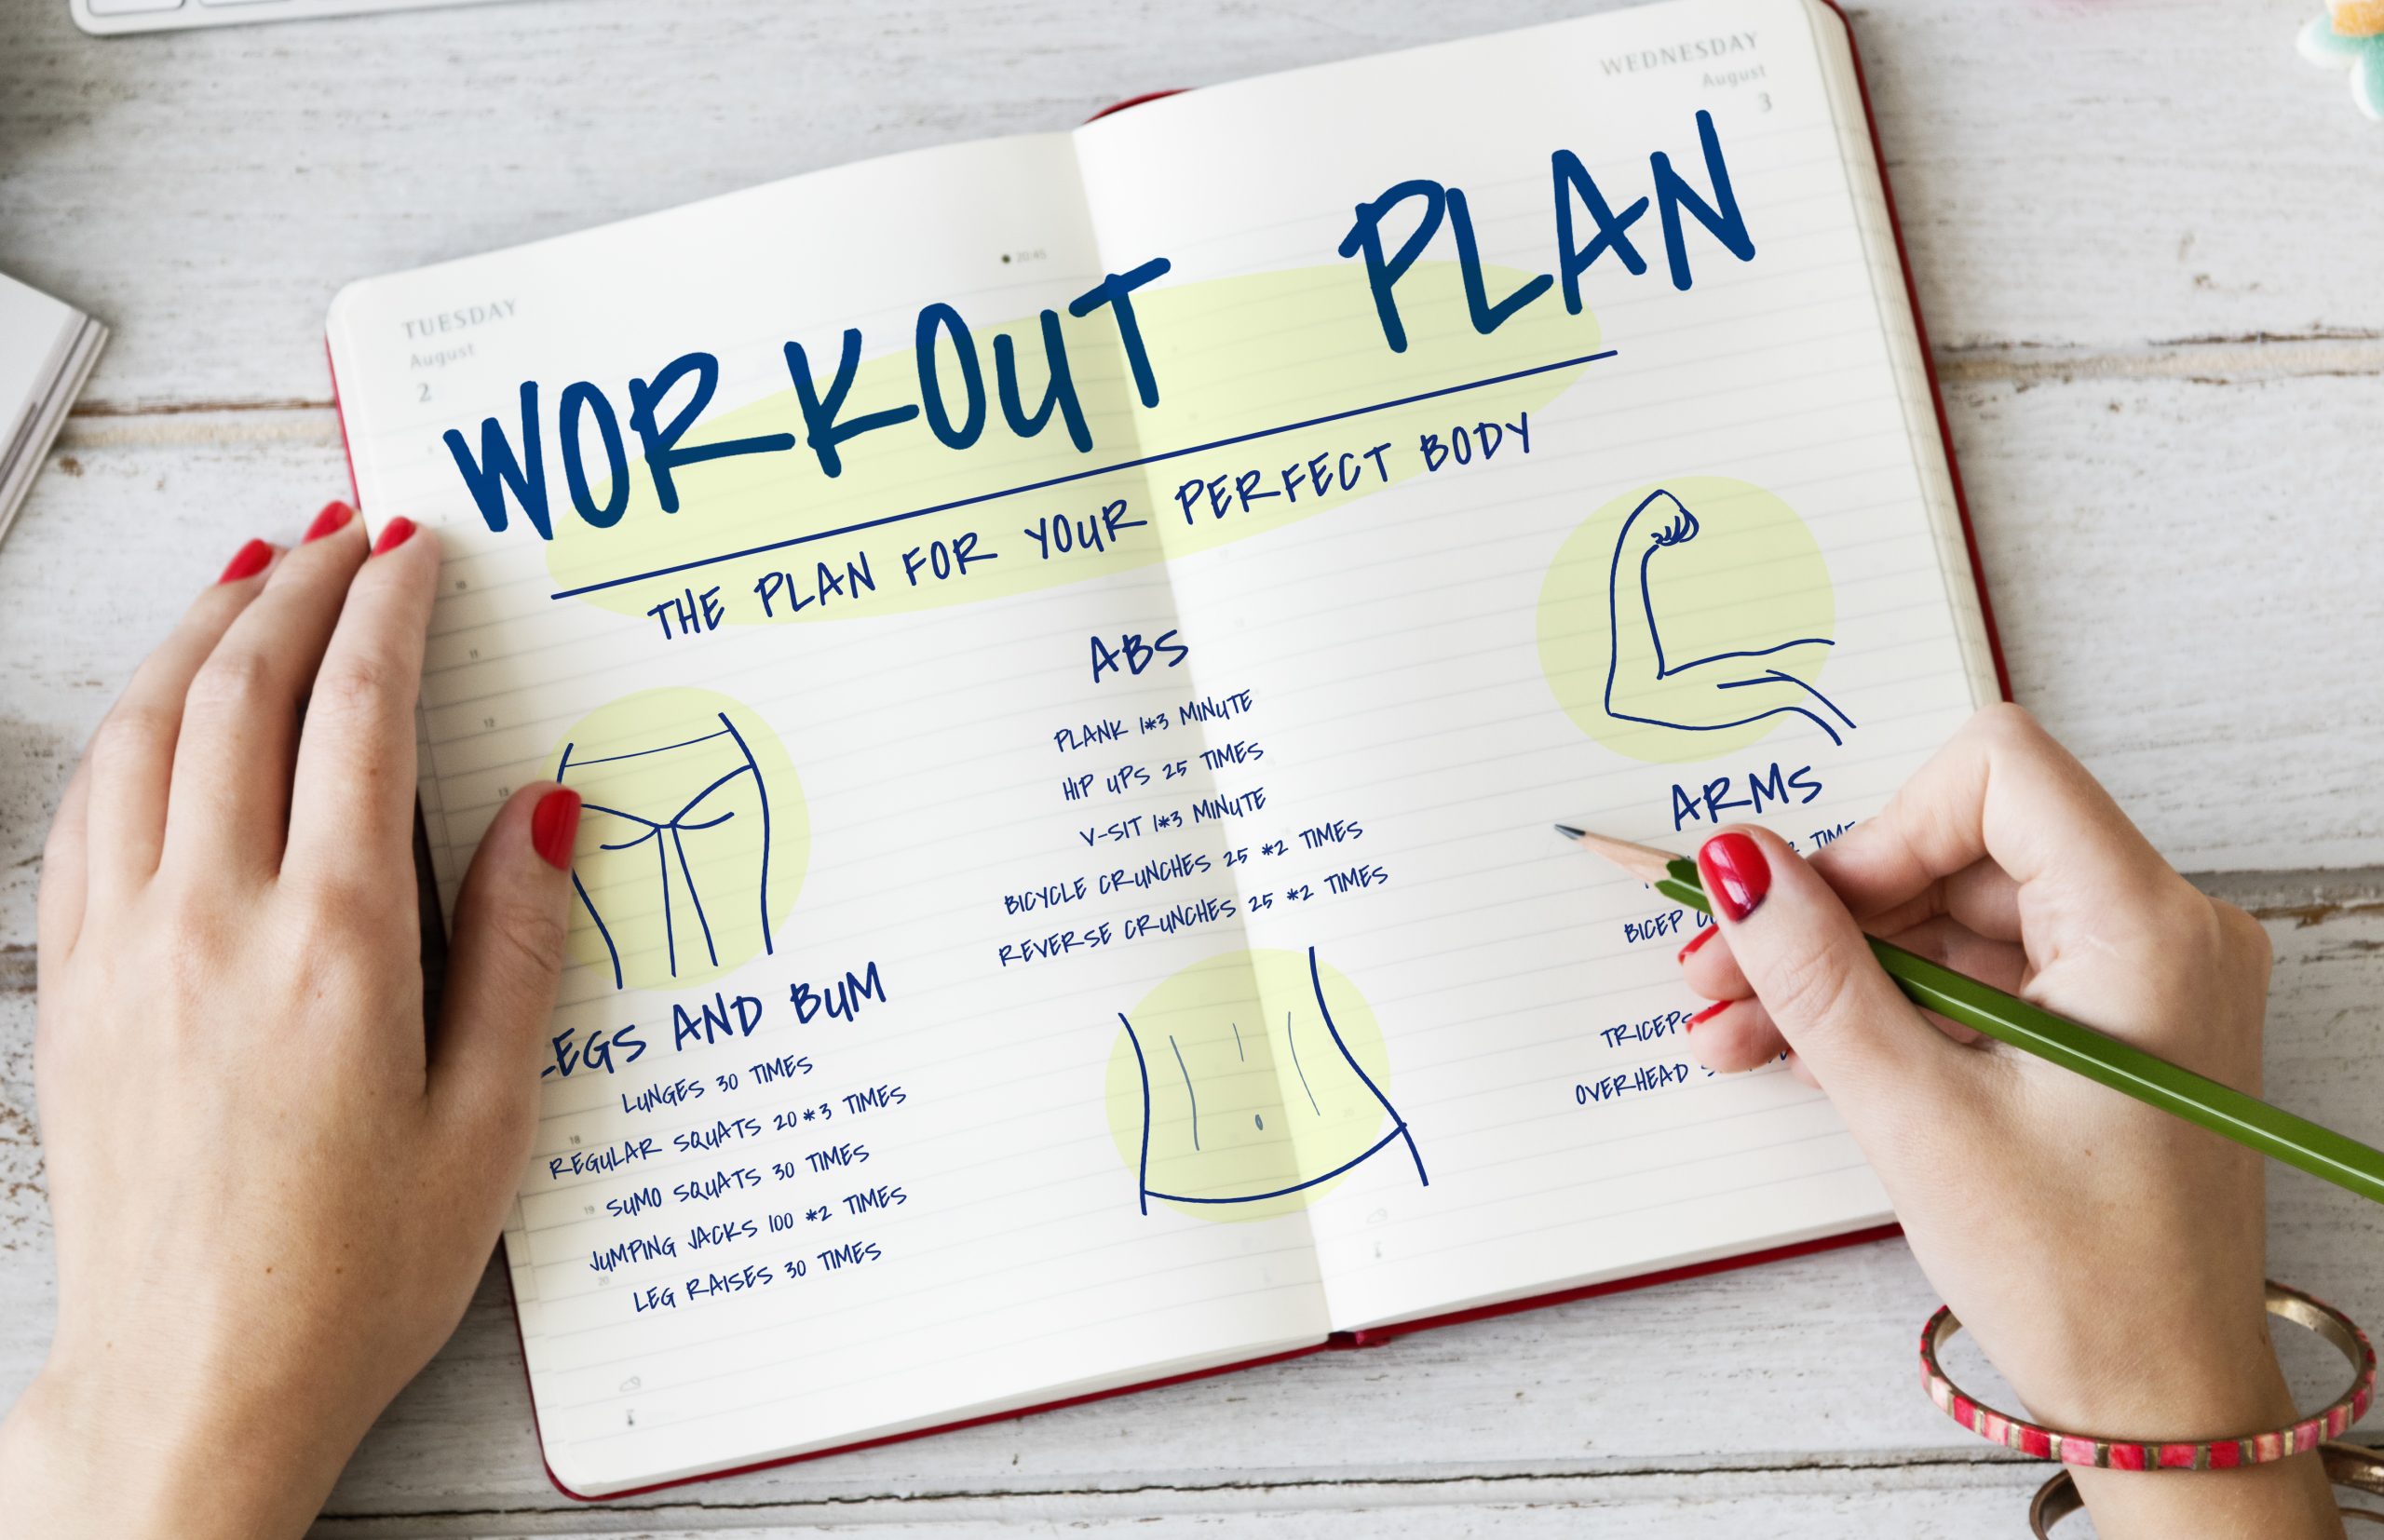 TUESDAY
August
2
WEDNESDAY
August
3
20:45
WORKOUT PLAN
THE PLAN FOR YOUR PERFECT BODY
LEGS AND BUM
LUNGES 30 TIMES
REGULAR SQUATS 20*3 TIMES
SUMO SQUATS 30 TIMES
JUMPING JACKS 100 *2 TIMES
LEG RAISES 30 TIMES
ABS
PLANK 1*3 MINUTE
HIP UPS 25 TIMES
V-SIT 1*3 MINUTE
BICYCLE CRUNCHES 25 *2 TIMES
REVERSE CRUNCHES 25 *2 TIMES
ARMS
BICEP
TRICEPS
OVERHEAD
10
11
12
18
19
20